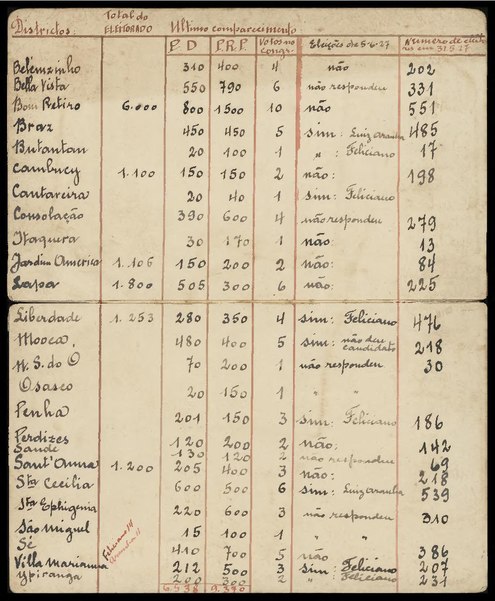 Districtos: Total do ELEITORADO Ultimo comparecimento
P.D P.R.P. Votos no congr. Eleições de 5-6-27 Numero de eleitores em 31.5.27
Belemzinho 310 400 4 não 202
Bella Vista 550 790 6 não respondeu 331
Bom Retiro 6.000 800 1500 10 não 551
Braz 450 450 5 sim: Luiz Aranha 485
Butantan 20 100 1 " Feliciano 17
Cambucy 1.100 150 150 2 não: 198
Cantareira 20 40 1 sim: Feliciano
Consolação 390 600 4 não respondeu 279
Itaquera 30 170 1 não: 13
Jardim America 1.106 150 200 2 não: 84
Lapa 1.800 505 300 6 não: 225
Liberdade 1.253 280 350 4 sim: Feliciano 476
Mooca. 480 400 5 sim: não deu candidato 218
N. S. do O 70 200 1 não respondeu 30
Osasco 20 150 1 " "
Penha 201 150 3 sim: Feliciano 186
Perdizes 120 200 2 não: 142
Saude 130 120 2 não respondeu 69
Sant'Anna 1.200 205 400 3 não: 218
Sta Cecilia 600 500 6 sim: Luiz Aranha 539
Sta Ephigenia 220 600 3 não respondeu 310
São Miguel 15 100 1 " "
Sé 410 700 5 não 386
Villa Marianna 212 500 3 sim: Feliciano 207
Ypiranga 200 300 2 " Feliciano 231
Feliciano 14
9.370